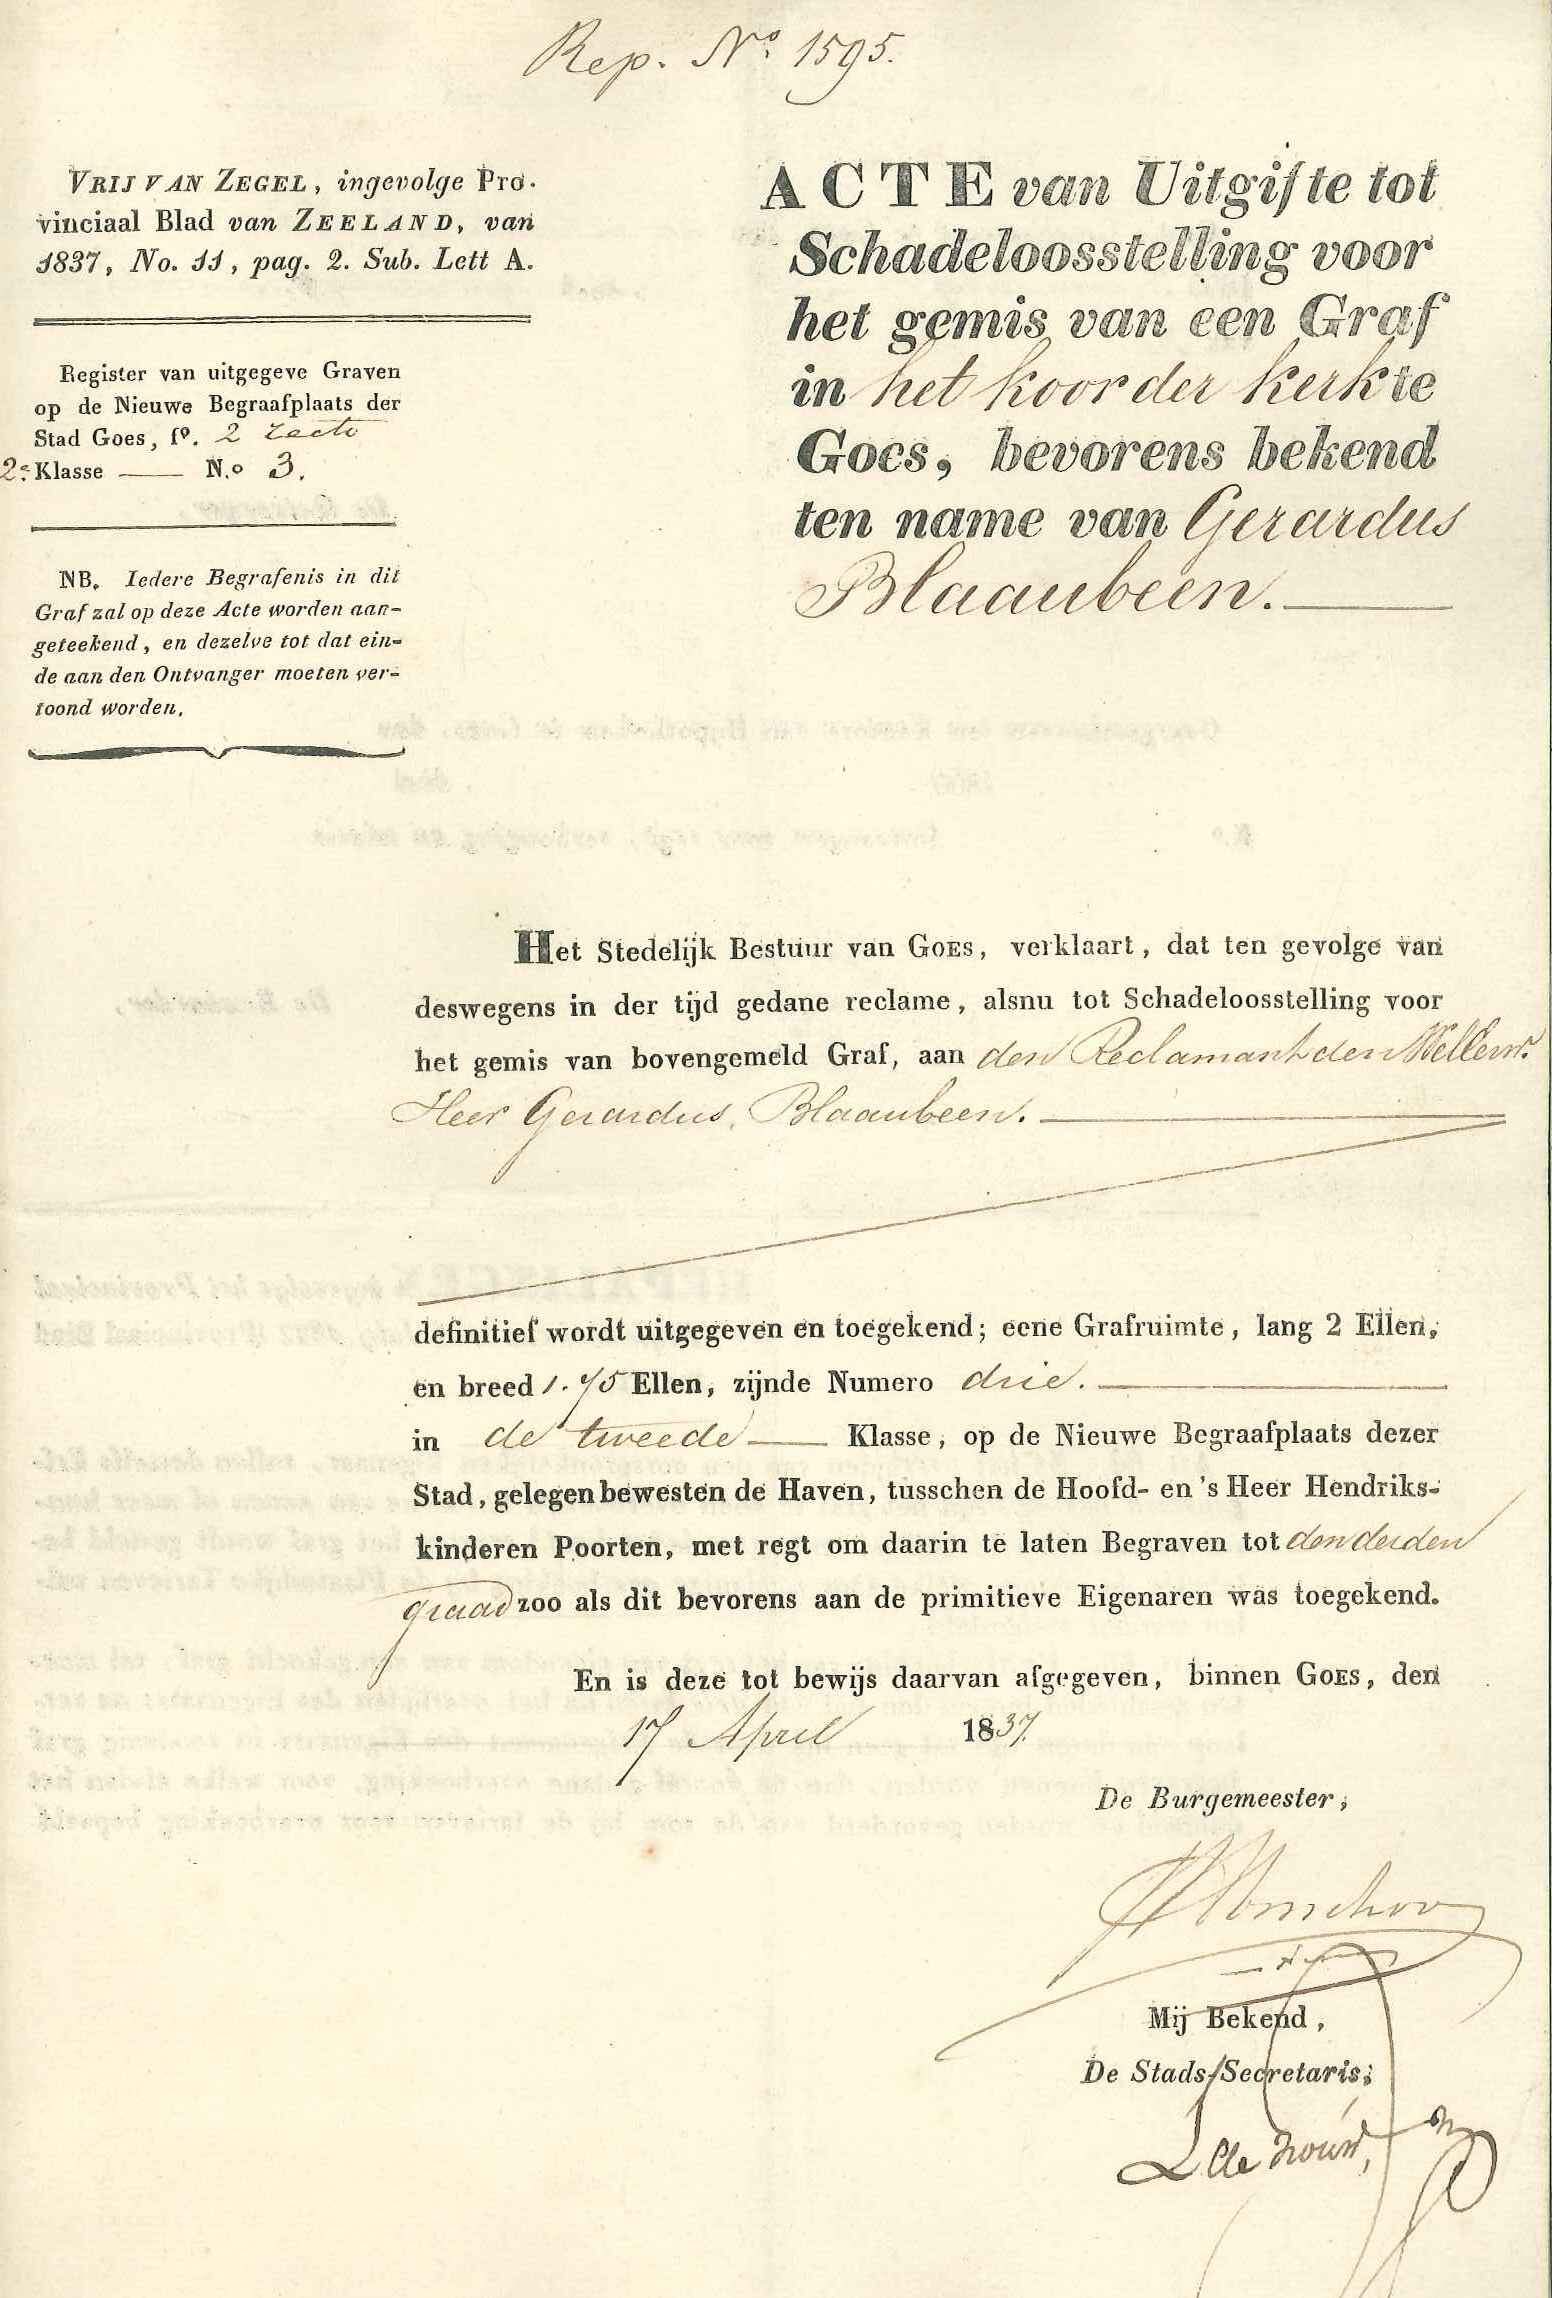 Rep. No. 1595.
VRIJ VAN ZEGEL, ingevolge Pro-
vinciaal Blad van ZEELAND, van
1837, No. 11, pag. 2. Sub. Lett A.
Register van uitgegeve Graven
op de Nieuwe Begraafplaats der
Stad Goes, fo. 2 recto
2e Klasse — N.o 3.
NB. Iedere Begrafenis in dit
Graf zal op deze Acte worden aan-
geteekend, en dezelve tot dat ein-
de aan den Ontvanger moeten ver-
toond worden.
ACTE van Uitgifte tot
Schadeloosstelling voor
het gemis van een Graf
in het koor der kerk te
Goes, bevorens bekend
ten name van Gerardus
Blaaubeen.
Het Stedelijk Bestuur van GOES, verklaart, dat ten gevolge van
deswegens in der tijd gedane reclame, alsnu tot Schadeloosstelling voor
het gemis van bovengemeld Graf, aan den Reclamant den
Heer Gerardus Blaaubeen.
definitief wordt uitgegeven en toegekend; eene Grafruimte, lang 2 Ellen,
en breed 1.75 Ellen, zijnde Numero drie.
in de tweede — Klasse, op de Nieuwe Begraafplaats dezer
Stad, gelegen bewesten de Haven, tusschen de Hoofd- en 's Heer Hendriks-
kinderen Poorten, met regt om daarin te laten Begraven tot den derden
graad zoo als dit bevorens aan de primitieve Eigenaren was toegekend.
En is deze tot bewijs daarvan afgegeven, binnen GOES, den
17 April 1837.
De Burgemeester,
Mij Bekend,
De Stads-Secretaris,